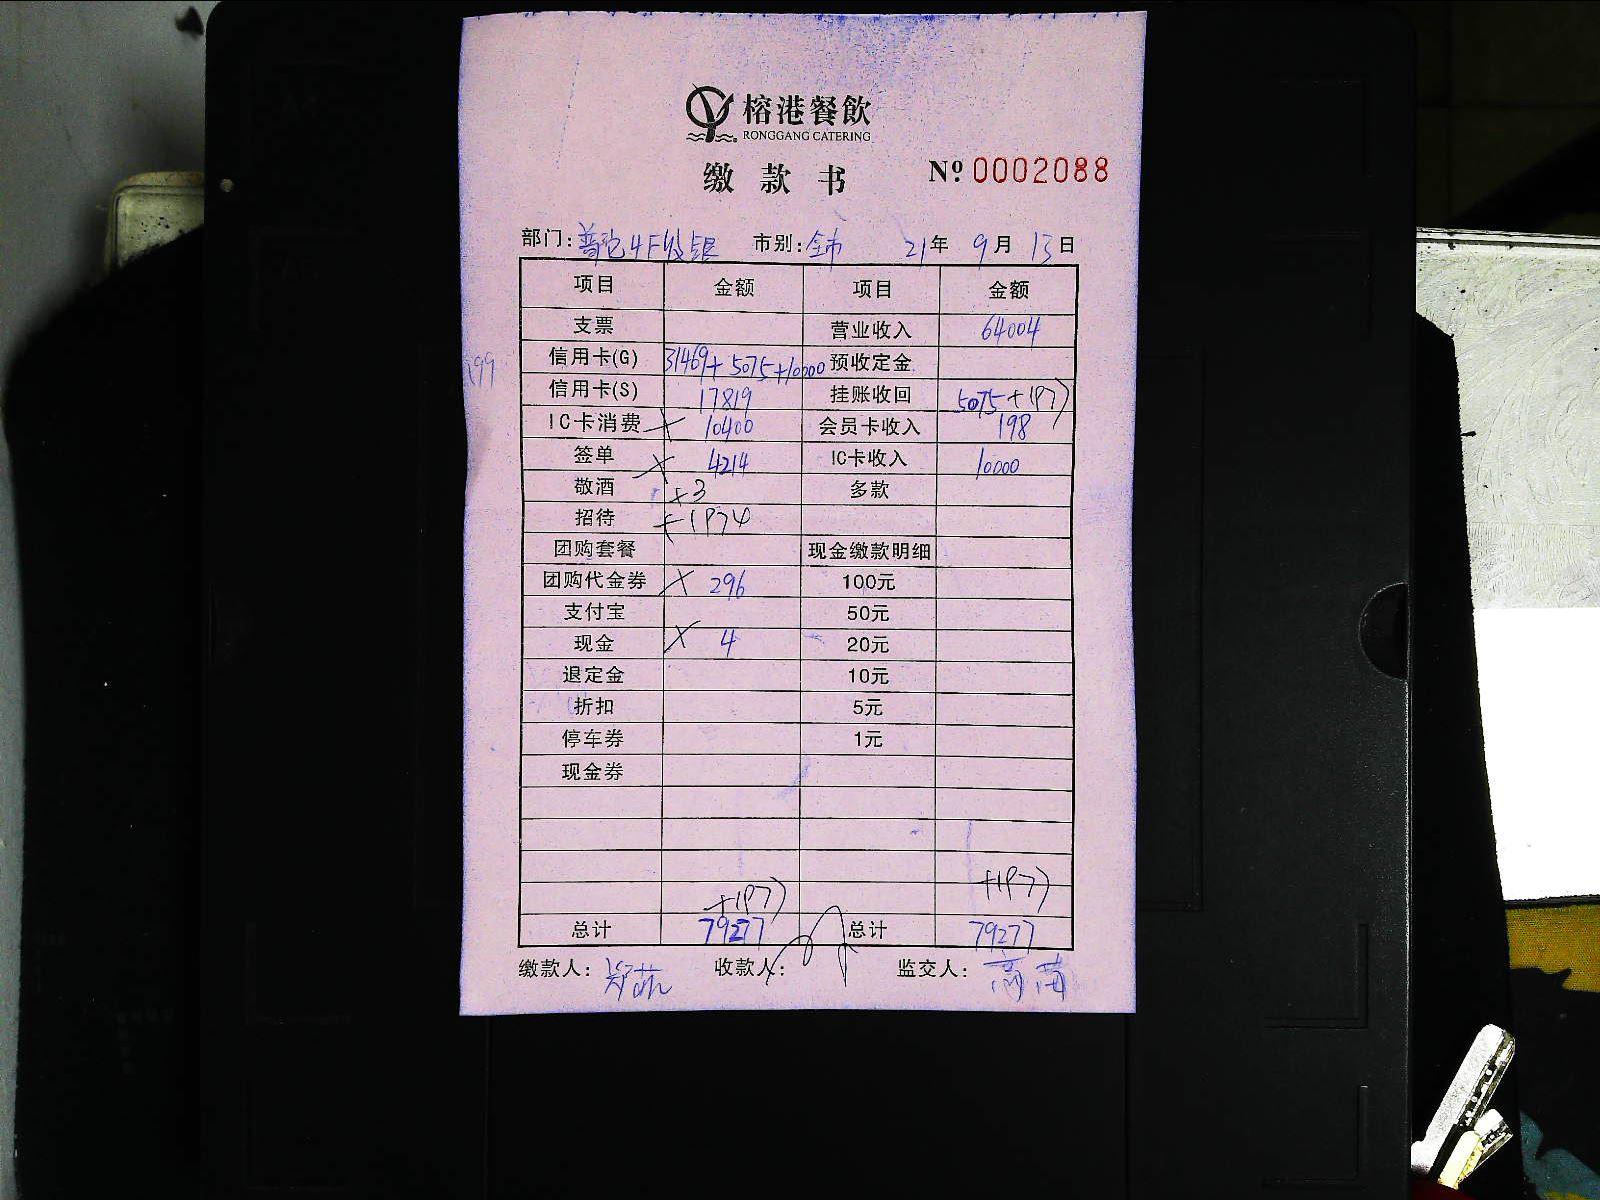 榕港餐飲
RONGGANG CATERING
缴款书 Nº 0002088
部门: 普陀4F收银 市别: 全市 21年 9月 13日
项目 金额 项目 金额
支票 营业收入 64004
信用卡(G) 31469+5075+10000 预收定金
信用卡(S) 17819 挂账收回 5075+1977
IC卡消费 × 10400 会员卡收入 198
签单 × 4214 IC卡收入 10000
敬酒 +3 多款
招待 +1974
团购套餐 现金缴款明细
团购代金券 × 296 100元
支付宝 50元
现金 × 4 20元
退定金 10元
折扣 5元
停车券 1元
现金券
+1977 +1977
总计 79277 总计 79277
缴款人: 收款人: 监交人: